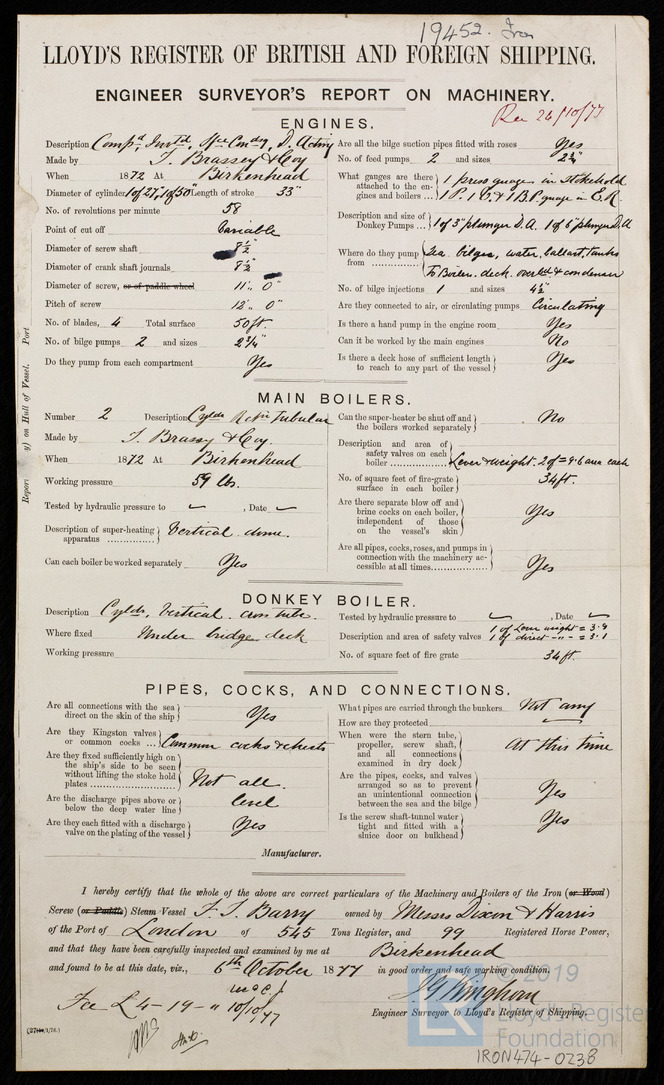 19452. Iron
LLOYD'S REGISTER OF BRITISH AND FOREIGN SHIPPING.
ENGINEER SURVEYOR'S REPORT ON MACHINERY.
Rec 26/10/77
ENGINES.
Description Comp^d, Invt^d, Sfce Cmdng, D. Acting
Made by T. Brassey & Coy
When 1872 At Birkenhead
Diameter of cylinder 1 of 27", 1 of 50" Length of stroke 33"
No. of revolutions per minute 58
Point of cut off Variable
Diameter of screw shaft 8½"
Diameter of crank shaft journals 8½"
Diameter of screw, or of paddle wheel 11' 0"
Pitch of screw 12' 0"
No. of blades, 4 Total surface 50 ft.
No. of bilge pumps 2 and sizes 2¾"
Do they pump from each compartment Yes
Are all the bilge suction pipes fitted with roses Yes
No. of feed pumps 2 and sizes 2¾"
What gauges are there attached to the engines and boilers
1 press gauge in Stokehold
1 P. 1 V. & 1 B.P. gauge in E.R.
Description and size of Donkey Pumps
1 of 3" plunger D.A. 1 of 6" plunger D.A
Where do they pump from
Sea, bilges, water, ballast, tanks
To Boiler. deck. overbd & condenser
No. of bilge injections 1 and sizes 4½"
Are they connected to air, or circulating pumps Circulating
Is there a hand pump in the engine room Yes
Can it be worked by the main engines No
Is there a deck hose of sufficient length to reach to any part of the vessel Yes
Report on Hull of Vessel. Port
MAIN BOILERS.
Number 2 Description Cyldr Retn Tubular
Made by T. Brassy & Coy.
When 1872 At Birkenhead
Working pressure 59 lbs.
Tested by hydraulic pressure to ✓, Date ✓
Description of super-heating apparatus Vertical dome.
Can each boiler be worked separately Yes
Can the super-heater be shut off and the boilers worked separately No
Description and area of safety valves on each boiler Lever & weight. 2 of = 9.6 area each
No. of square feet of fire-grate surface in each boiler 34 ft.
Are there separate blow off and brine cocks on each boiler, independent of those on the vessel's skin Yes
Are all pipes, cocks, roses, and pumps in connection with the machinery accessible at all times Yes
DONKEY BOILER.
Description Cyldr, Vertical. cross tube.
Where fixed Under bridge deck
Working pressure
Tested by hydraulic pressure to ✓, Date ✓
Description and area of safety valves 1 of Lever weight = 3.9
1 of direct -"- = 3.1
No. of square feet of fire grate 34 ft.
PIPES, COCKS, AND CONNECTIONS.
Are all connections with the sea direct on the skin of the ship Yes
Are they Kingston valves or common cocks Common cocks & chests
Are they fixed sufficiently high on the ship's side to be seen without lifting the stoke hold plates Not all.
Are the discharge pipes above or below the deep water line level
Are they each fitted with a discharge valve on the plating of the vessel Yes
What pipes are carried through the bunkers Not any
How are they protected
When were the stern tube, propeller, screw shaft, and all connections examined in dry dock At this time
Are the pipes, cocks, and valves arranged so as to prevent an unintentional connection between the sea and the bilge Yes
Is the screw shaft-tunnel water tight and fitted with a sluice door on bulkhead Yes
Manufacturer.
I hereby certify that the whole of the above are correct particulars of the Machinery and Boilers of the Iron (or Wood)
Screw (or Paddle) Steam Vessel F. T. Barry owned by Messrs Dixon & Harris
of the Port of London of 545 Tons Register, and 99 Registered Horse Power,
and that they have been carefully inspected and examined by me at Birkenhead
and found to be at this date, viz., 6th October 1877 in good order and safe working condition.
Fee £4-19-" 10/10/77
J G Kinghorn
Engineer Surveyor to Lloyd's Register of Shipping.
© 2019
Lloyd's Register
Foundation
LR
IRON474-0238